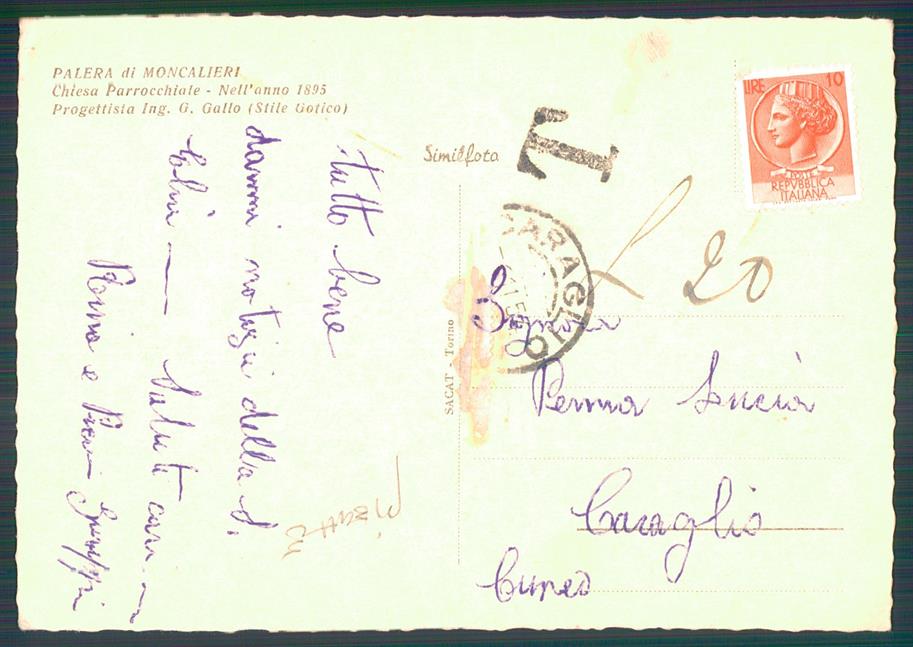 PALERA di MONCALIERI
Chiesa Parrocchiale - Nell'anno 1895
Progettista Ing. G. Gallo (Stile Gotico)
Similfoto
T
LIRE 10
POSTE
REPVBBLICA
ITALIANA
£ 20
CARAGLIO
SACAT - Torino
tutto bene
dammi notizie della
saluti
e
Signora
Lucia
Caraglio
Cuneo